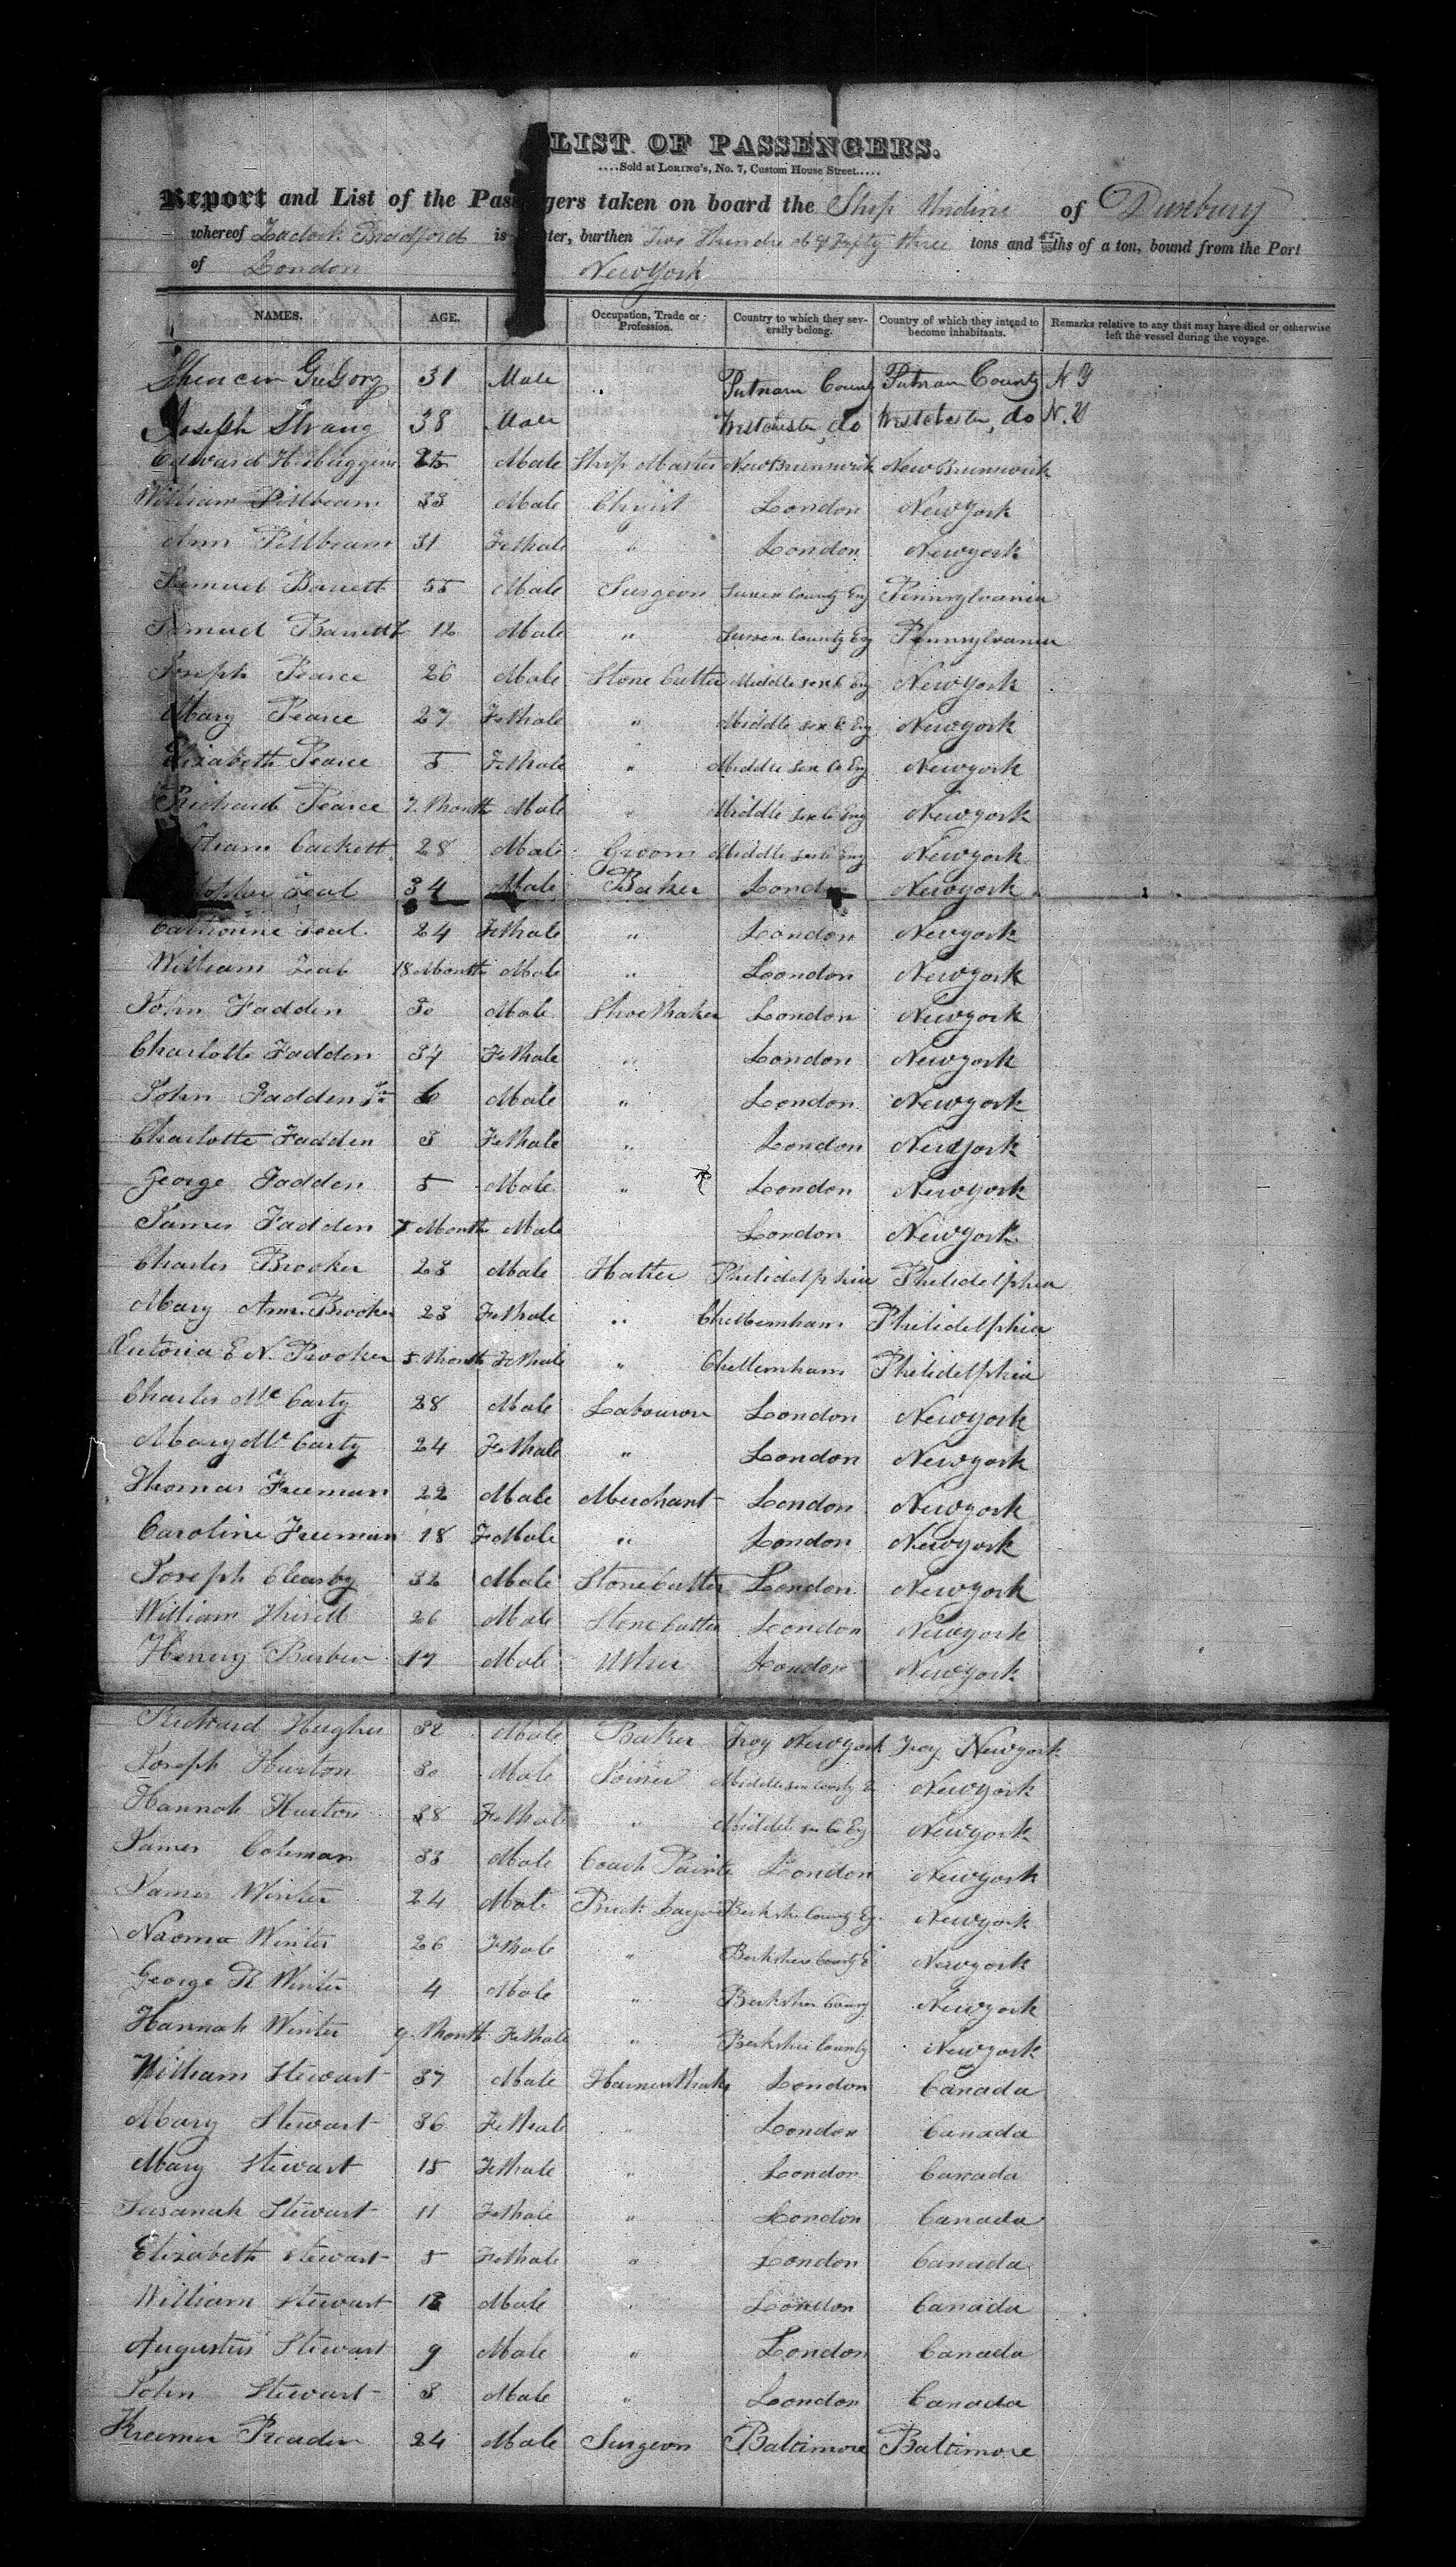 LIST OF PASSENGERS.
....Sold at LORING's, No. 7, Custom House Street.....
Report and List of the Pas gers taken on board the Ship Undine of Duxbury
whereof Zadock Bradford is ter, burthen Two Hundred & Fifty three tons and ths of a ton, bound from the Port
of London New York
NAMES. AGE. Occupation, Trade or Profession. Country to which they severally belong. Country of which they intend to become inhabitants. Remarks relative to any that may have died or otherwise left the vessel during the voyage.
Spencer Gregory 31 Male " Putnam County Putnam County N Y
Joseph Strang 38 Male Westchester, do Westchester, do N. Y
Edward H. 25 Male Ship Master New Brunswick New Brunswick
William Pillbeam 33 Male London New York
Ann Pillbeam 31 FeMale " London Newyork
Samuel Barrett 55 Male Surgeon Sussex County Eng Pennsylvania
Samuel Barrett 12 Male " Sussex County Eng Pennsylvania
Joseph Pearce 26 Male Stone Cutter Middle sex C Eng Newyork
Mary Pearce 27 FeMale " Middle sex C Eng Newyork
Elizabeth Pearce 5 FeMale " Middle sex Co Eng Newyork
Richard Pearce 7. Month Male " Middle sex C Eng Newyork
Cackett 28 Male Groom Middle sex C Eng Newyork
Teal 34 Male Baker London Newyork
Catharine Teal 24 FeMale " London Newyork
William Teal 18 Month Male " London Newyork
John Fadden 30 Male Shoe Maker London Newyork
Charlotte Fadden 34 FeMale " London Newyork
John Fadden Jr 6 Male " London Newyork
Charlotte Fadden 3 FeMale " London Newyork
George Fadden 5 Male " London Newyork
James Fadden Month Male London Newyork
Charles Brooker 28 Male Hatter Philidelphia Philidelphia
Mary Ann Brooker 23 FeMale " Cheltemham Philidelphia
Victoria E N. Brooker 5 Month FeMale " Cheltemham Philidelphia
Charles Mc Carty 28 Male Labourer London Newyork
Mary Mc Carty 24 FeMale " London Newyork
Thomas Freeman 22 Male Merchant London Newyork
Caroline Freeman 18 FeMale " London Newyork
Joseph Cleasby 32 Male Stone Cutter London Newyork
William 26 Male Stone Cutter London Newyork
Henry Barber 17 Male Usher London Newyork
Richard Hughes 32 Male Baker Troy Newyork Troy Newyork
Joseph Hurton 30 Male Joiner Middlesex County E Newyork
Hannah Hurton 38 FeMale " Middle sex Co Eng Newyork
James Coleman 33 Male Coach Painte London Newyork
James Winter 24 Male Brick Layer Berkshire County Eg. Newyork
Naoma Winter 26 FeMale " Berkshire County E Newyork
George H Winter 4 Male " Berkshire County Newyork
Hannah Winter 9. Month FeMale " Berkshire County Newyork
William Stewart 37 Male Harness Maker London Canada
Mary Stewart 36 FeMale " London Canada
Mary Stewart 15 FeMale " London Canada
Susanah Stewart 11 FeMale " London Canada
Elizabeth Stewart 5 FeMale " London Canada
William Stewart 13 Male " London Canada
Augustus Stewart 9 Male " London Canada
John Stewart 3 Male " London Canada
24 Male Surgeon Baltimore Baltimore